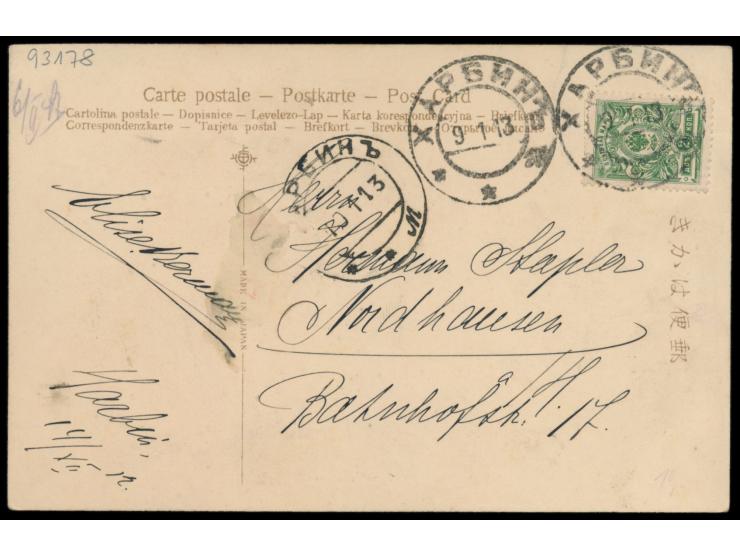 93178
6/II 13
Carte postale – Postkarte – Post Card
Cartolina postale – Dopisnice – Levelezo-Lap – Karta korespondencyjna – Briefkort
Correspondenzkarte – Tarjeta postal – Brefkort – Brevkort – Открытое письмо
ХАРБИНЪ
9 1 13
ХАРБИНЪ
9
РБИНЪ
1 13
MADE IN JAPAN
Herrn
Hermann Stapler
Nordhausen
a/H.
Bahnhofstr. 17.
Harbin,
14/XII 12.
きかは便郵